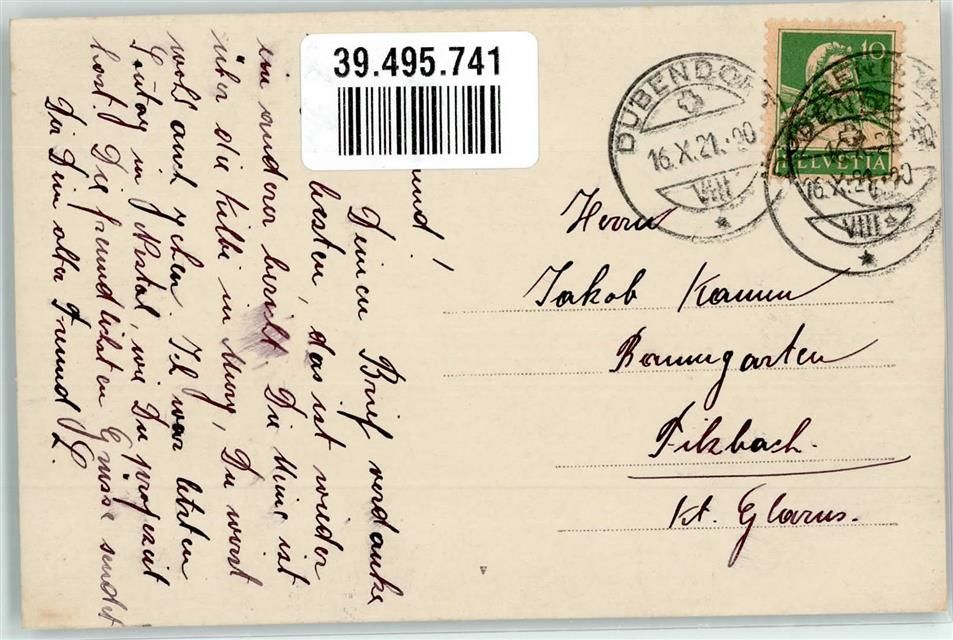 39.495.741
DÜBENDORF
16.X.21.-20
VIII
10
HELVETIA
DÜBENDORF
16.X.21.-20
VIII
Herrn
Jakob Kamm
Baumgarten
Filzbach.
Kt. Glarus.
Deinen Brief verdanke
besten, das ist wieder
ein anderer bericht. Die Meine ist
über die Kilbi in Murg, Du warst
wohl auch gehen. Ich war letzten
Sontag in Nestal, wie Du
hast. Die freundlichsten Grüsse sendet
Dir Dein alter Freund